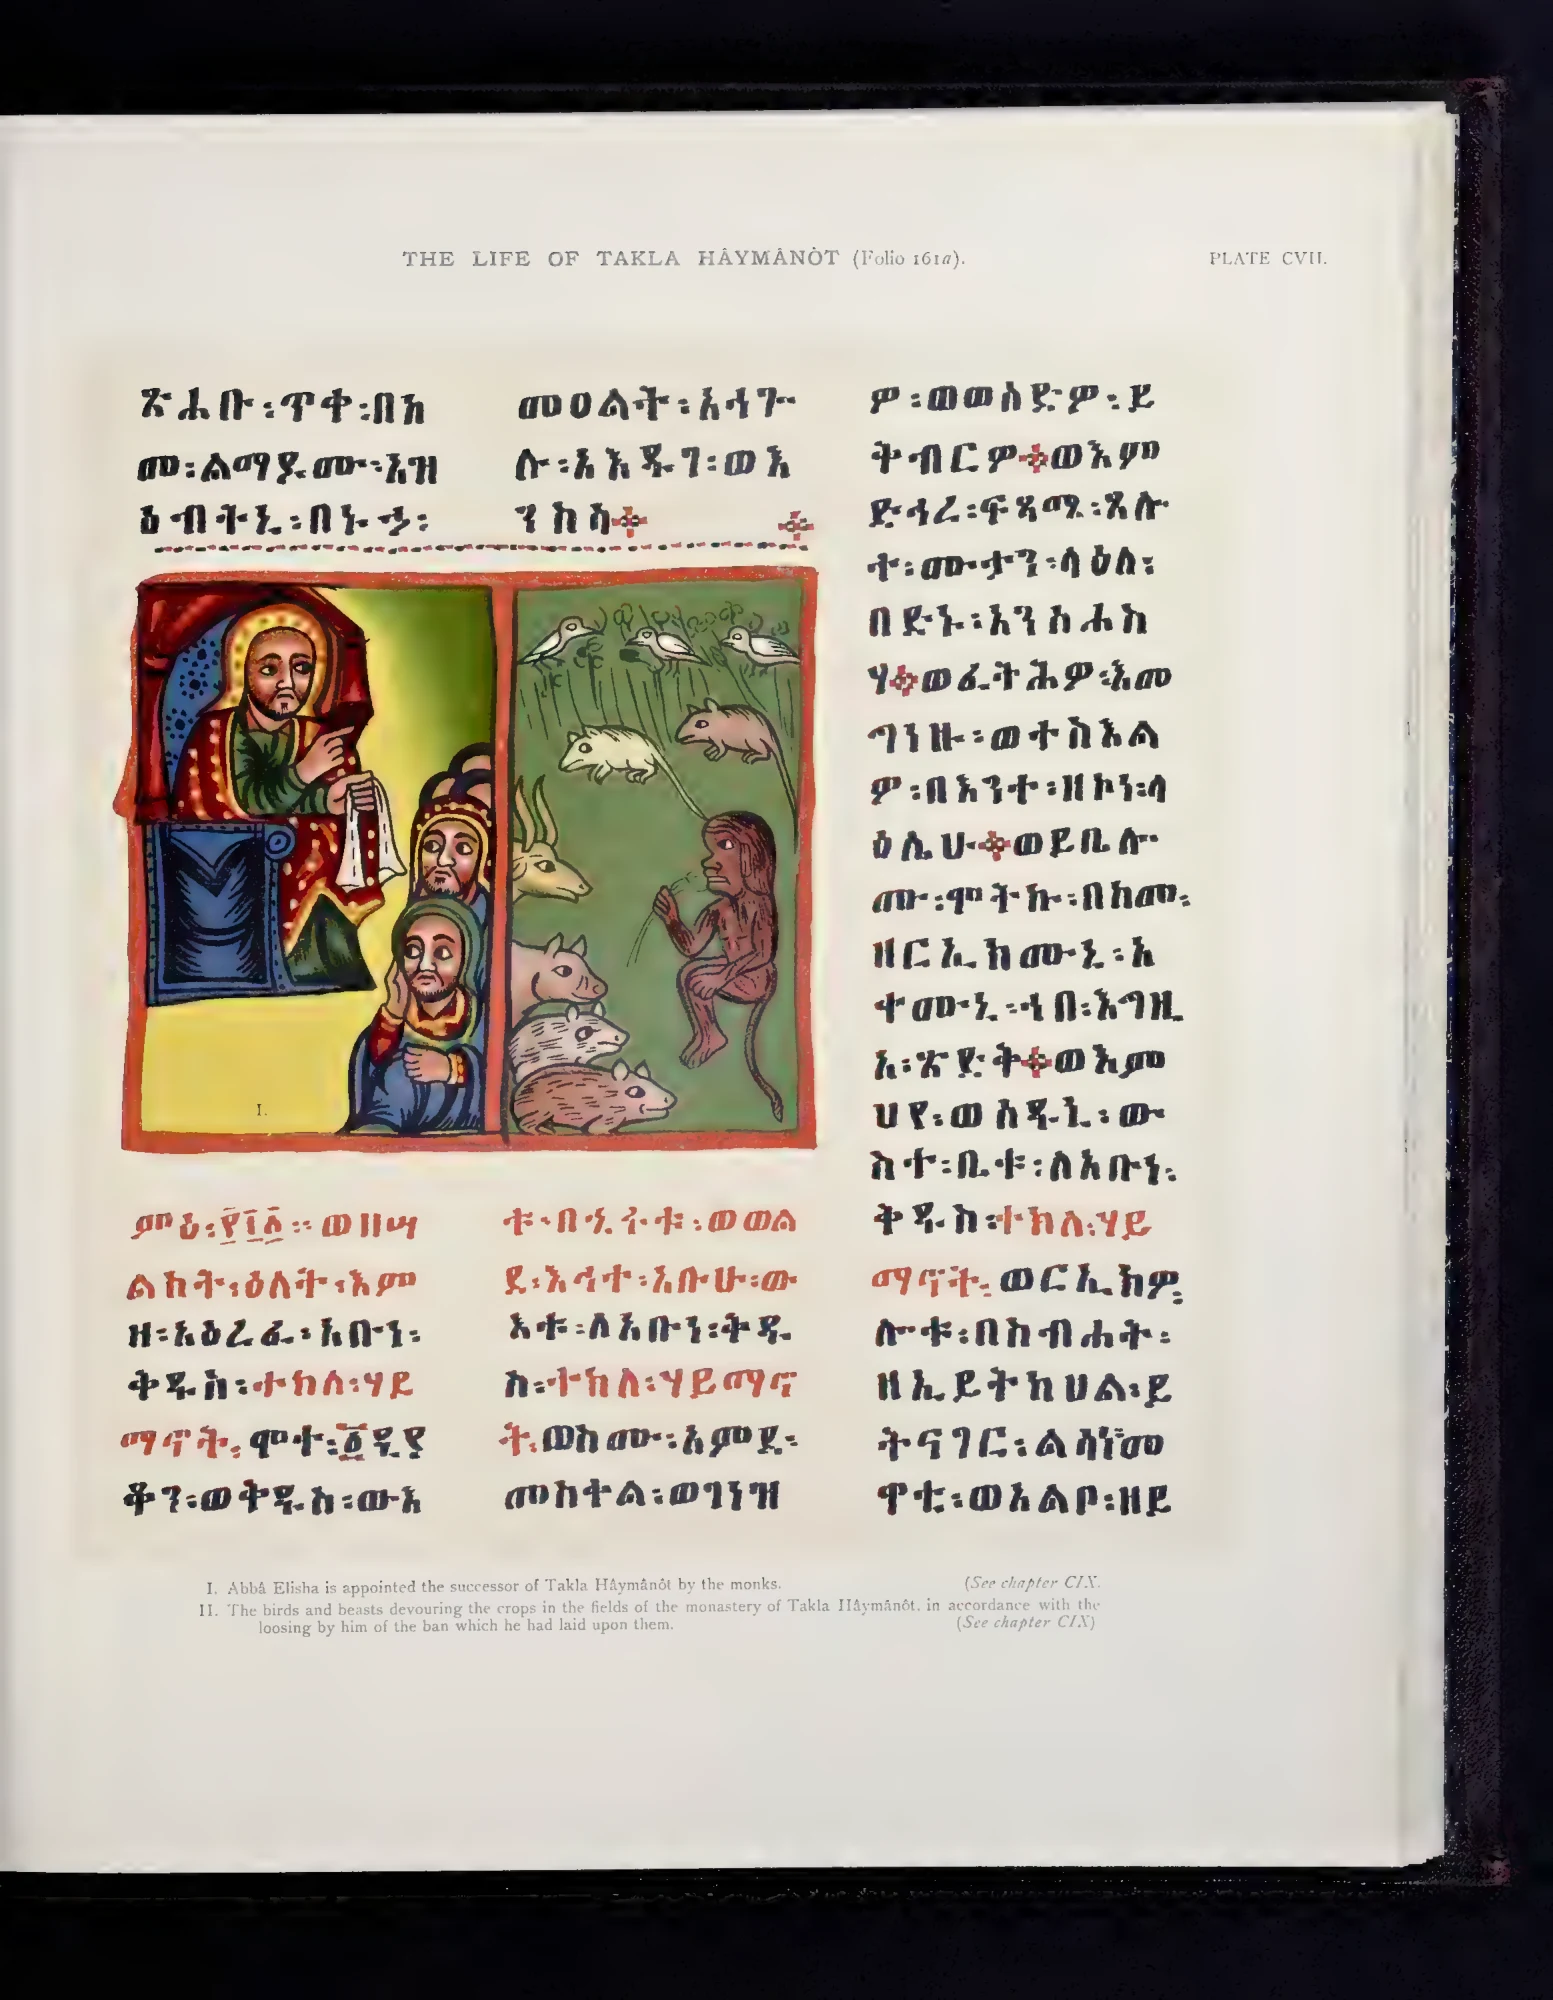 THE LIFE OF TAKLA HÂYMÂNÔT (Folio 161a).
PLATE CVII.
ጽሐቡ፡ጥቀ፡በእ
መ፡ልማዶሙ፡እዝ
ዕብትኒ፡በኑኃ፡
መዐልት፡አኅጐ
ሉ፡አእዱገ፡ወእ
ንከሰ
ምዕ፡፻፲፩፡፡ወዘሣ
ልከት፡ዕለት፡እም
ዘ፡አዕረፈ፡አቡነ፡
ቅዱስ፡ተክለ፡ሃይ
ማኖት፡ሞተ፡፩ዲያ
ቆን፡ወቅዱስ፡ውእ
ቱ፡በኂሩቱ፡ወወል
ደ፡እኅተ፡አቡሁ፡ው
እቱ፡ለአቡነ፡ቅዱ
ስ፡ተክለ፡ሃይማኖ
ት፡ወስሙ፡አምደ፡
መስቀል፡ወገነዝ
ዎ፡ወወሰድዎ፡ይ
ቅብርዎ፡ወእም
ድኅረ፡ፍጻሜ፡ጸሎ
ተ፡ሙታን፡ላዕለ፡
በድኑ፡አንሰሐስ
ሃ፡ወፈትሕዎ፡እመ
ግነዙ፡ወተስእል
ዎ፡በእንተ፡ዘኮነ፡ላ
ዕሌሁ፡ወይቤሎ
ሙ፡ሞትኩ፡በከመ፡
ዘርኢክሙኒ፡አ
ቀሙኒ፡ኀበ፡እግዚ
አ፡ጽድቅ፡ወእም
ህየ፡ወሰዱኒ፡ው
ስተ፡ቤቱ፡ለአቡነ፡
ቅዱስ፡ተክለ፡ሃይ
ማኖት፡ወርኢክዎ፡
ሎቱ፡በስብሐት፡
ዘኢይትከሀል፡ይ
ትናገር፡ልሳነ፡መ
ዋቲ፡ወአልቦ፡ዘይ
I.
I. Abbâ Elisha is appointed the successor of Takla Hâymânôt by the monks. (See chapter CIX.
II. The birds and beasts devouring the crops in the fields of the monastery of Takla Hâymânôt. in accordance with the
loosing by him of the ban which he had laid upon them. (See chapter CIX)